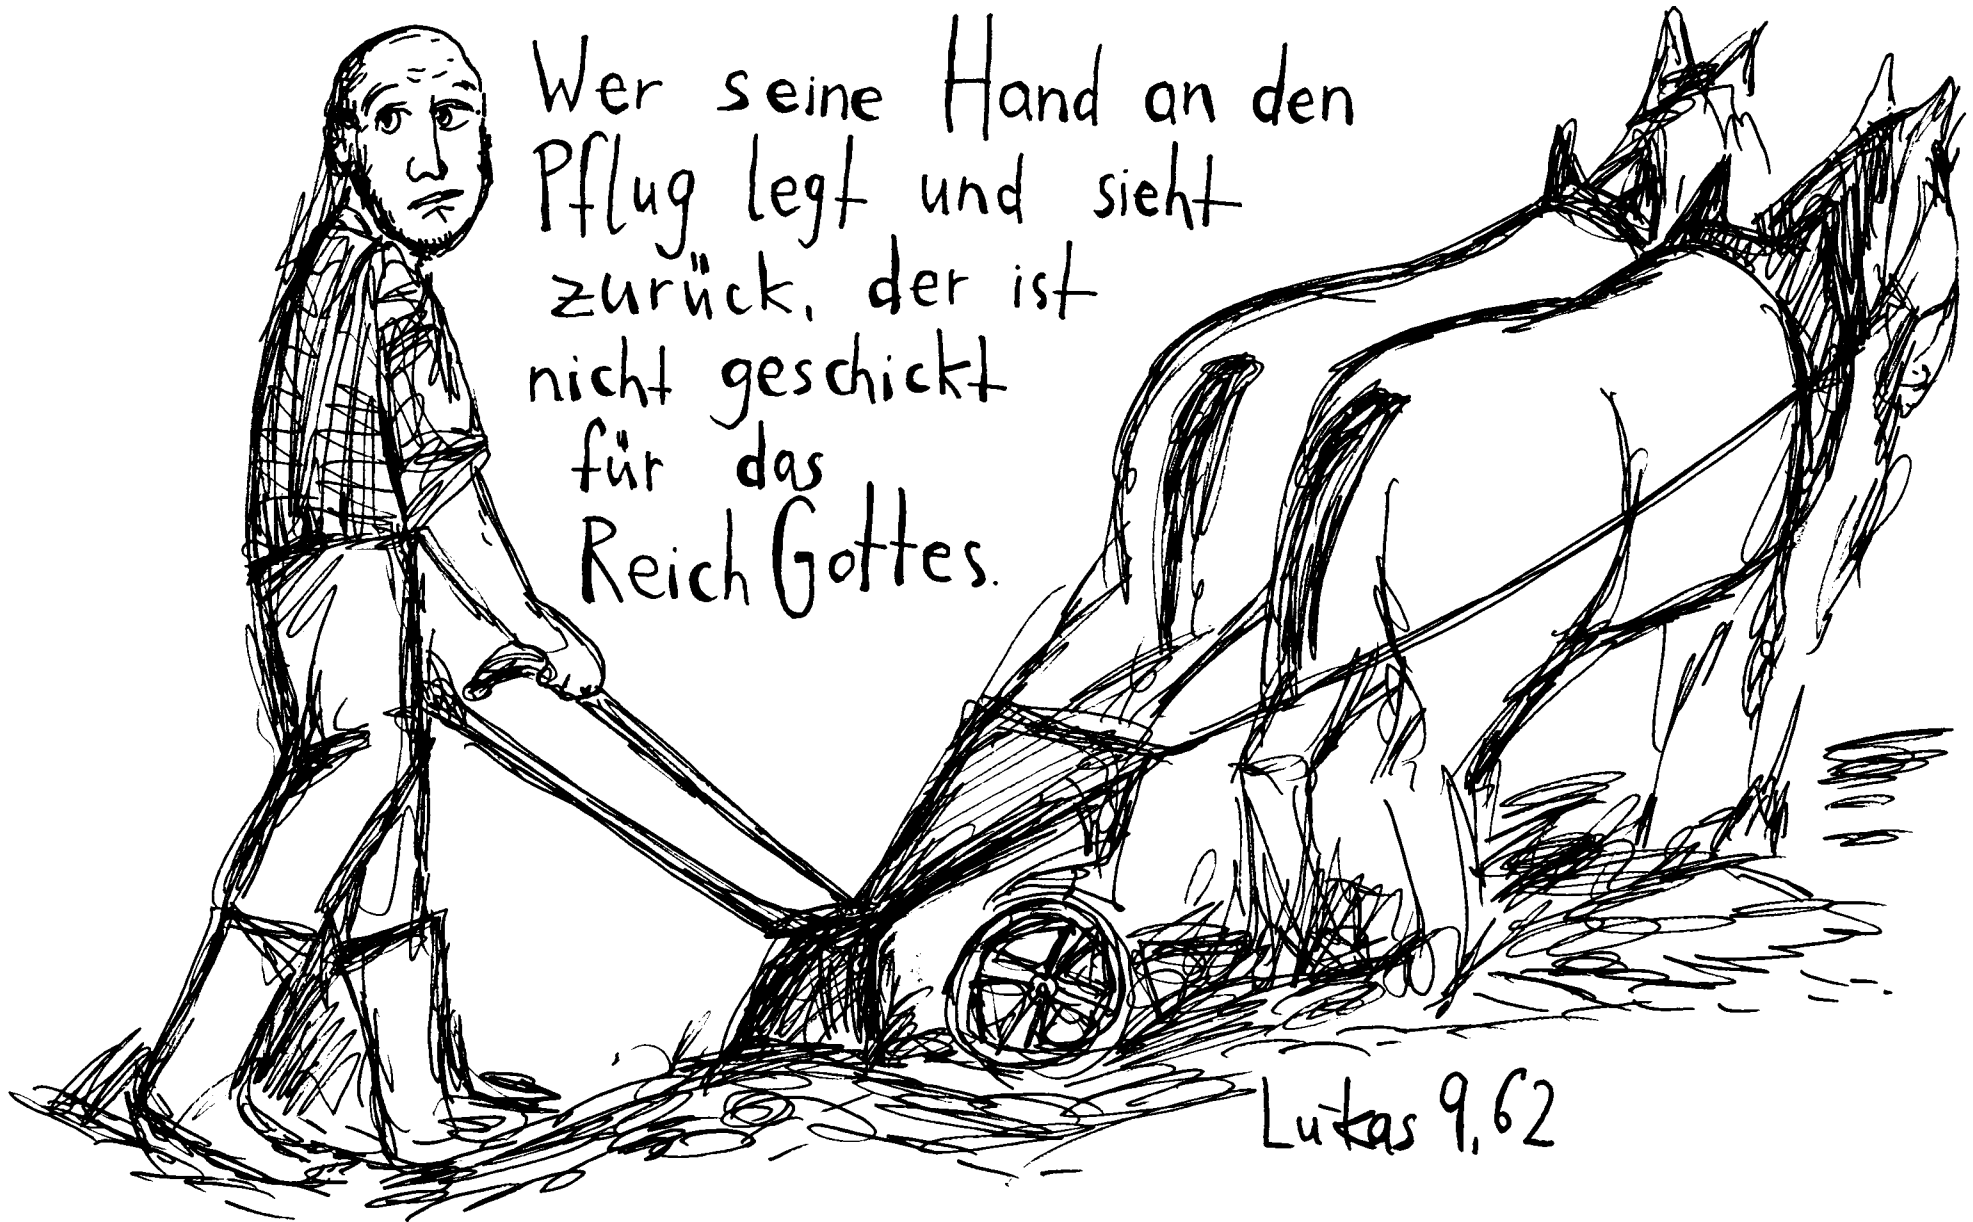 Wer seine Hand an den
Pflug legt und sieht
zurück, der ist
nicht geschickt
für das
Reich Gottes.
Lukas 9,62